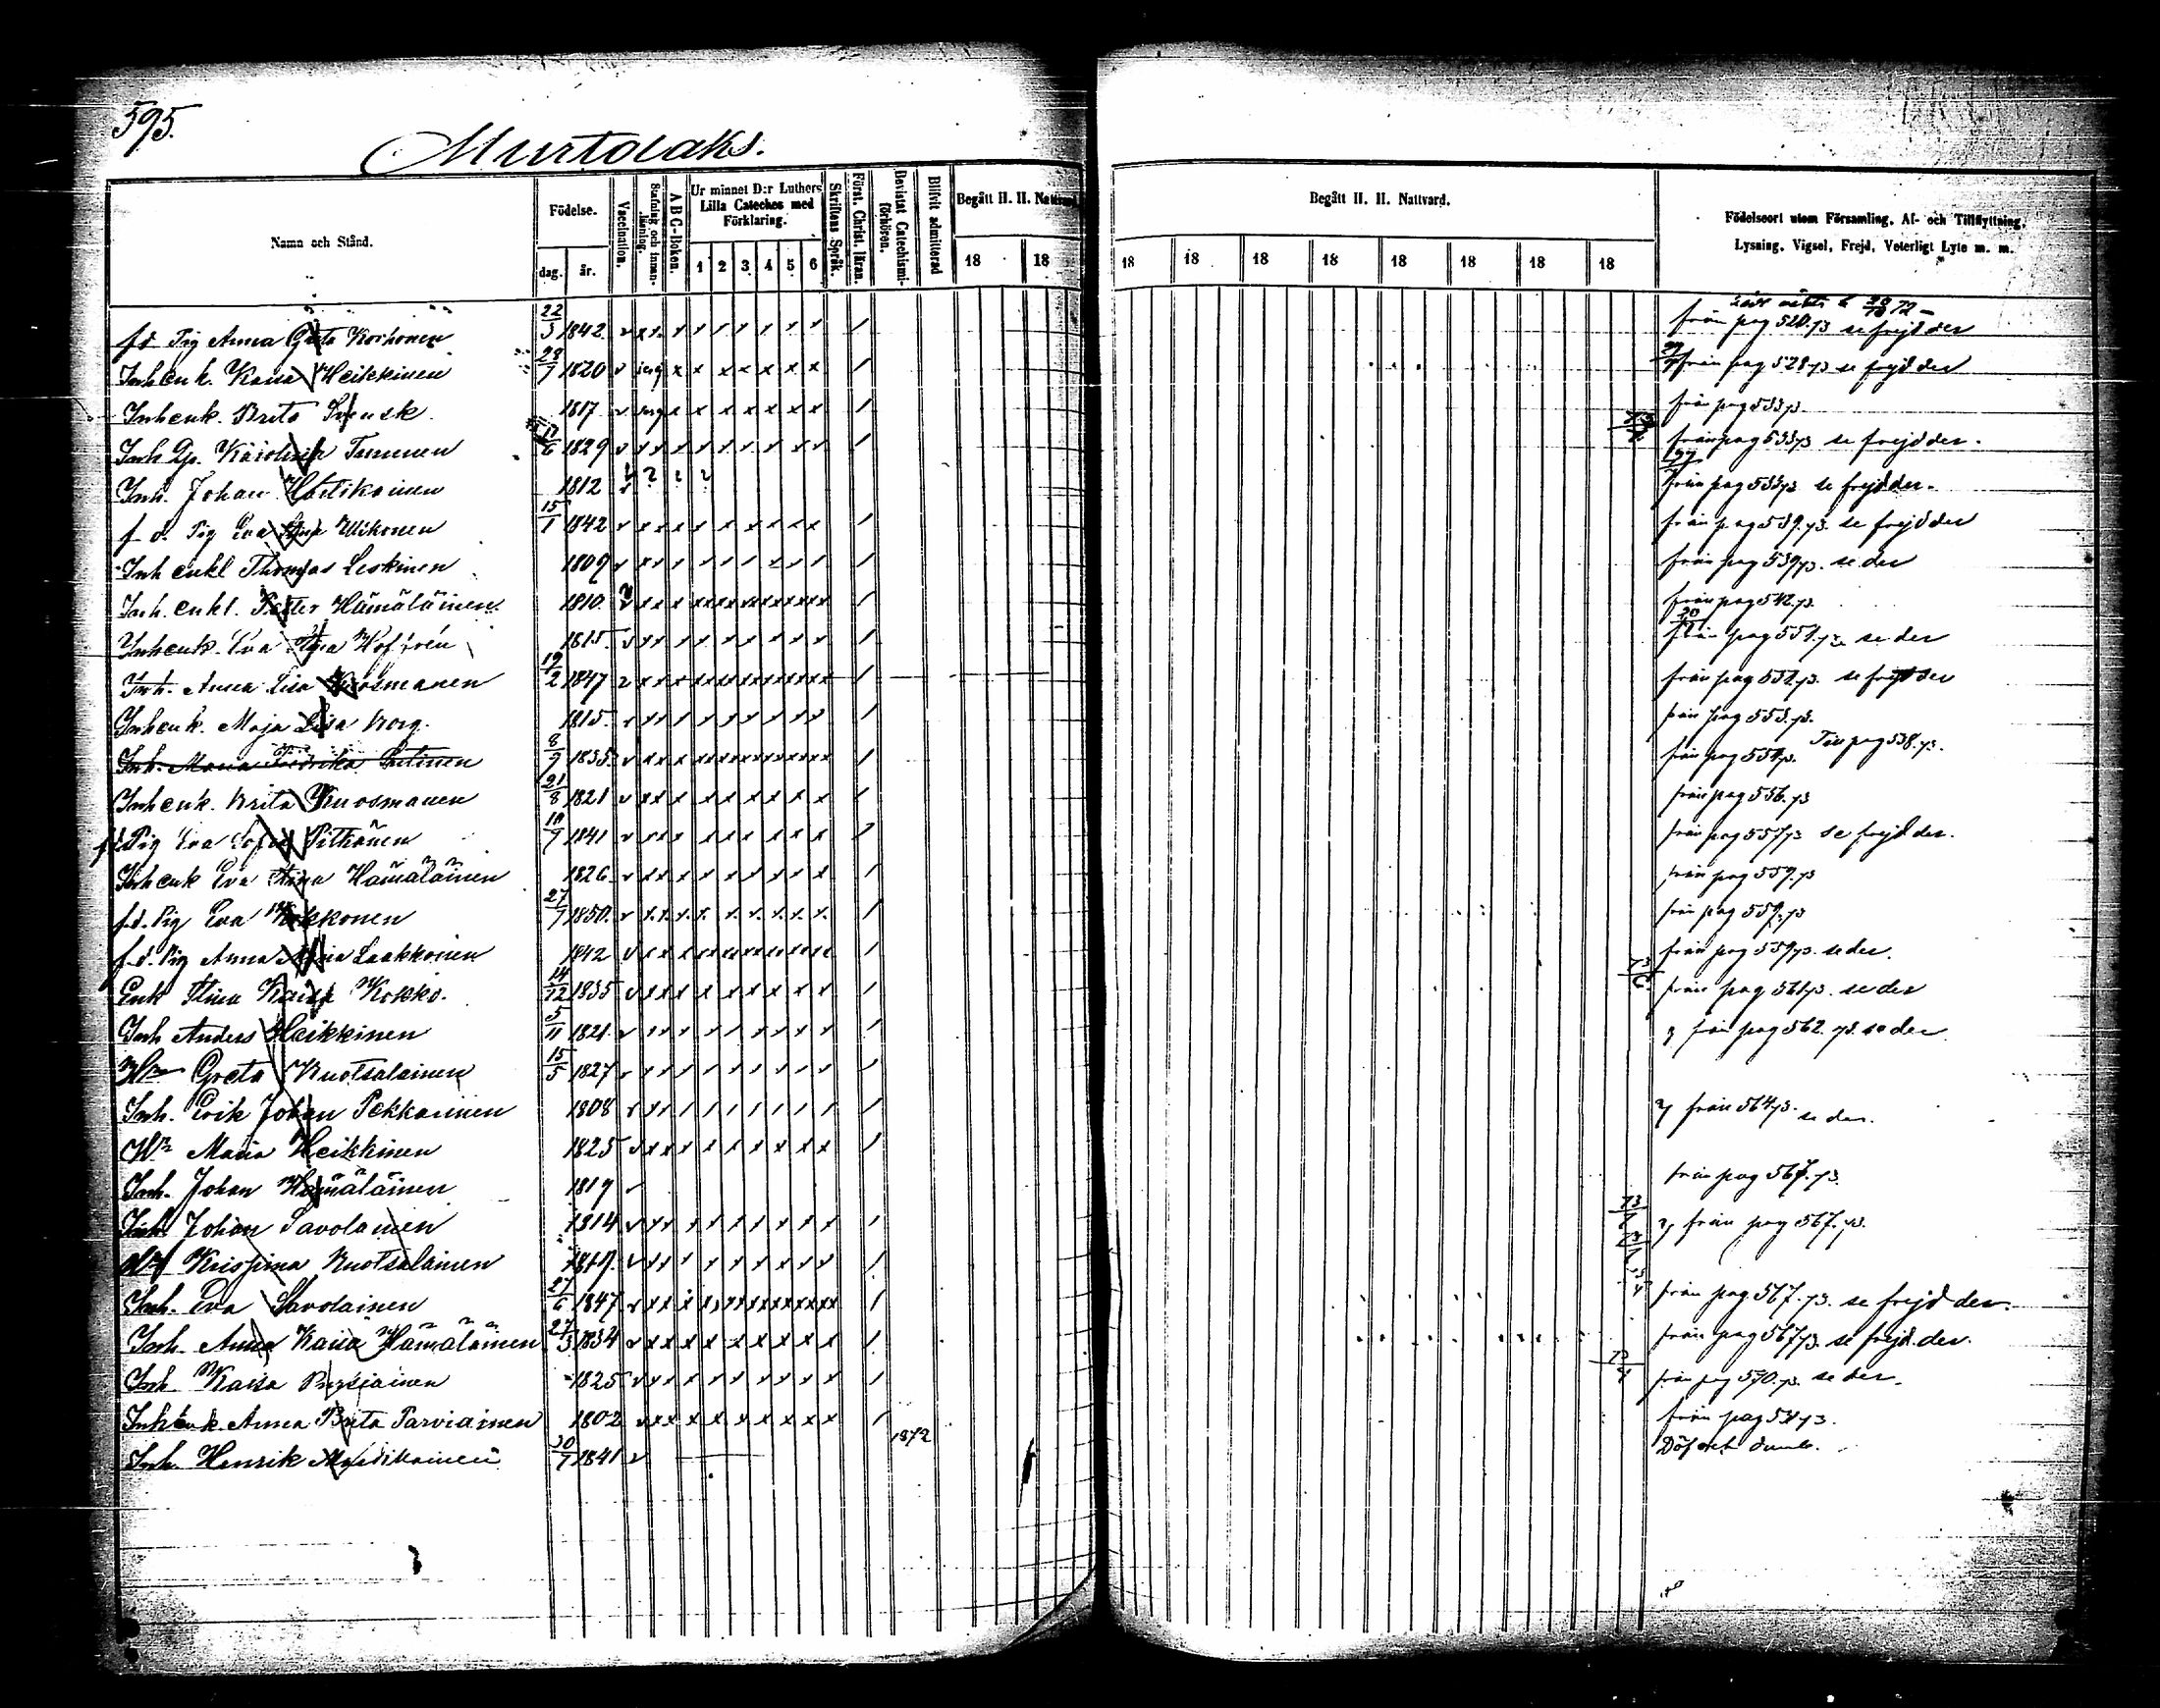 595.
Murtolaks.
Namn och Stånd.
Födelse.
dag. år.
Vaccination.
Stafning och innan-läsning.
A B C-Boken.
Ur minnet D:r Luthers Lilla Cateches med Förklaring.
1 2 3 4 5 6
Skriftens Språk.
Först. Christ. läran.
Bevistat Catechismi-förhören.
Blifvit admitterad
Begått H. H. Nattvard.
18 18
Begått H. H. Nattvard.
18 18 18 18 18 18 18 18
Födelseort utom Församling, Af- och Tillflyttning,
Lysning, Vigsel, Frejd, Veterligt Lyte m. m.
fd Pig Anna Greta Korhonen 22/3 1842 från pag 520.73 se frejd der
Inhenk. Kaisa Heikkinen 28/7 1820 från pag 528.73 se frejd der
Inhenk. Brita Svensk 1817 från pag 533.73
Inh. Karolina Tamminen 17/6 1829 från pag 533.73 se frejd der.
Inh. Johan 1812 från pag 533.73 se frejd der.
f.d. Pig Eva Stina Mikonen 15/1 1842 från pag 539.73. se frejd der
Inh enkl Thomas Leskinen 1809 från pag 539.73. se der
Inh. enkl. Petter Hämäläinen 1810. från pag 542.73.
Inhenk. Eva Stina Hoffrén 1815. från pag 551.73 se der
Inh. Anna Lisa Kuosmanen 19/2 1847 från pag 552.73. se frejd der
Inhenk. Maja Lisa Borg. 1815. från pag 553.73.
Inh. Maria Fredrika 8/9 1835 från pag 554.73. Till pag 538.73.
Inhenk. Brita Kuosmanen 21/8 1821 från pag 556.73
fd Pig Eva Sofia Pitkänen 10/7 1841 från pag 557.73 se frejd der.
Inhenk Eva Stina Hämäläinen 1826 från pag 559.73
f.d. Pig Eva Kokkonen 27/7 1850. från pag 559.73
f.d. Pig Anna Laakkonen 1842 från pag 559.73. se der.
Enk Stina Kaisa Kokko. 14/12 1835 från pag 561.73. se der
Inh Anders Heikkinen 5/11 1821. från pag 562.73. se der
Hn Greta Ruotsalainen 15/5 1827
Inh. Erik Johan Pekkarinen 1808 från 564.73. se der.
Hn Maria Heikkinen 1825
Inh. Johan Hämäläinen 1819 från pag 567.73.
Inh Johan Savolainen 1814 från pag 567.73.
Hn Kristina Ruotsalainen 1819.
Inh. Eva Savolainen 27/6 1847 från pag. 567.73. se frejd der.
Inh. Anna Kaisa Hämäläinen 27/3 1834 från pag 567.73. se frejd. der.
Inh. Kaisa 1825 från pag 570.73. se der.
Inhenk. Anna Brita Parviainen 1802 från pag
Inh. Henrik 30/7 1841 1872 Döf och dumb.